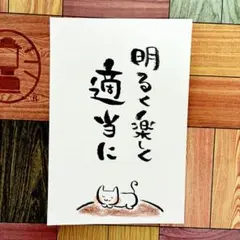 明るく楽しく
適当に